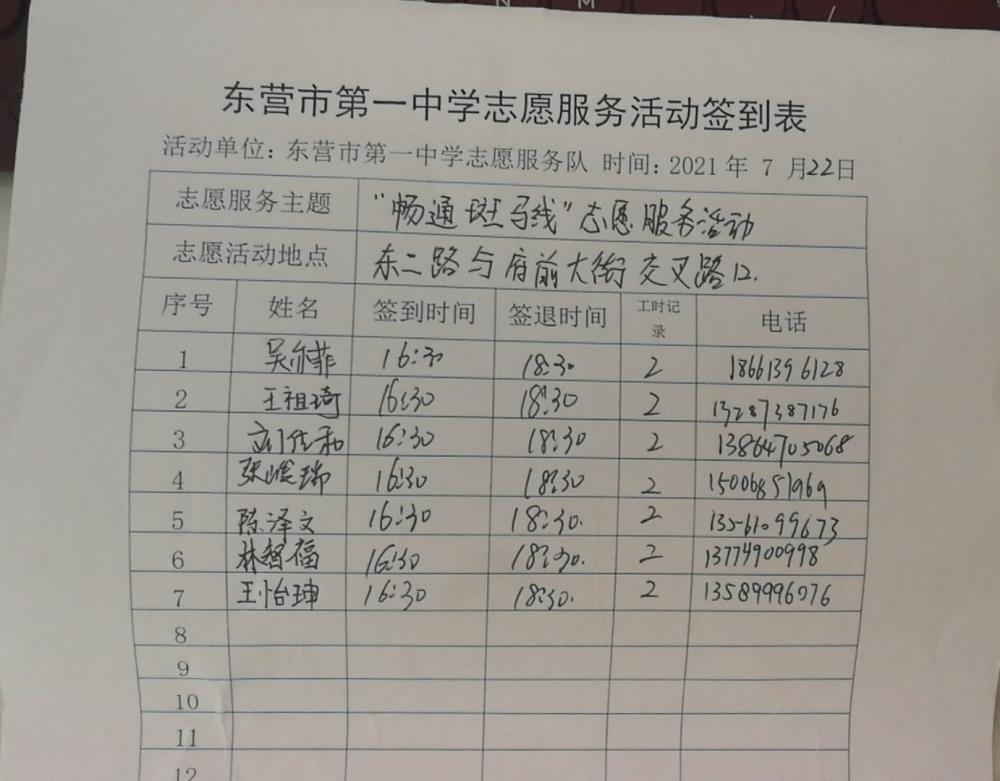 N M
东营市第一中学志愿服务活动签到表
活动单位：东营市第一中学志愿服务队 时间：2021年 7 月22日
志愿服务主题 “畅通斑马线”志愿服务活动
志愿活动地点 东二路与府前大街交叉路口.
序号 姓名 签到时间 签退时间 工时记录 电话
1 吴尔菲 16:30 18:30 2 18661396128
2 王祖琦 16:30 18:30 2 13287387176
3 刘佳和 16:30 18:30 2 13864705068
4 张峻瑞 16:30 18:30 2 15006851969
5 陈泽文 16:30 18:30. 2 13561099673
6 林智福 16:30 18:30. 2 13774900998
7 王怡珅 16:30 18:30. 2 13589996076
8
9
10
11
12